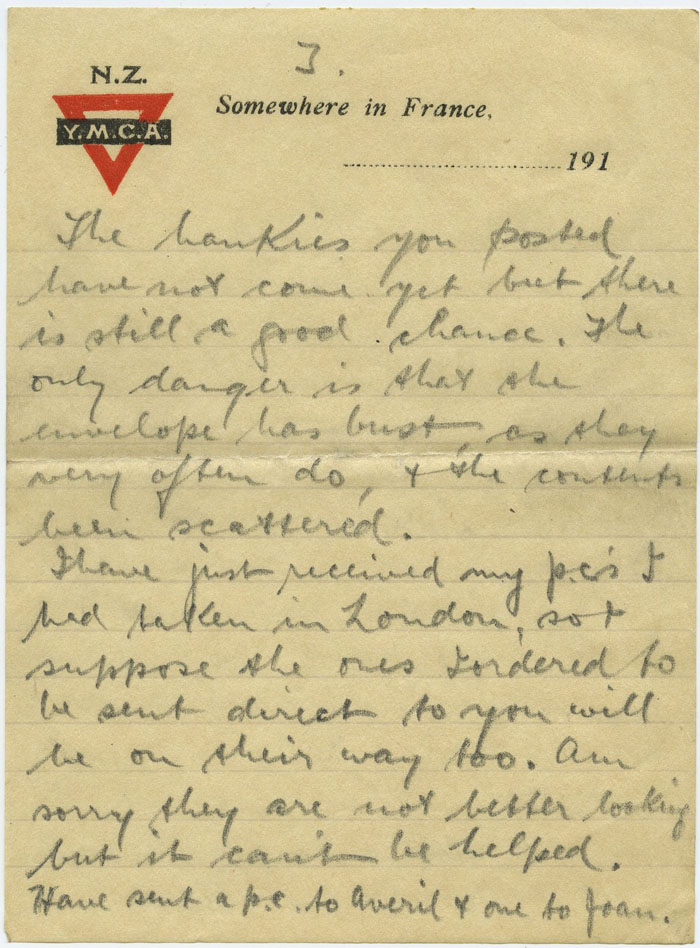 3.
N.Z.
Y.M.C.A.
Somewhere in France,
191
The hankies you posted
have not come yet but there
is still a good chance. The
only danger is that the
envelope has bust, as they
very often do, & the contents
been scattered.
I have just received my p.c's I
had taken in London, so I
suppose the ones I ordered to
be sent direct to you will
be on their way too. Am
sorry they are not better looking
but it can't be helped.
Have sent a p.c. to Averil & one to Joan.